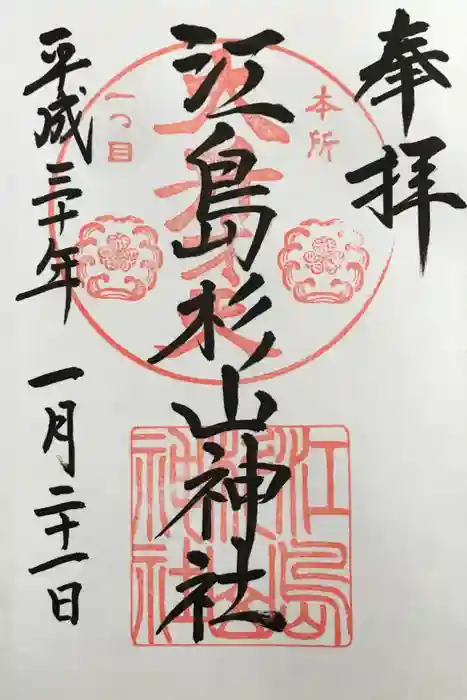 奉拝
本所
一つ目
江島杉山神社
平成三十年 一月二十一日
江島
杉山
神社